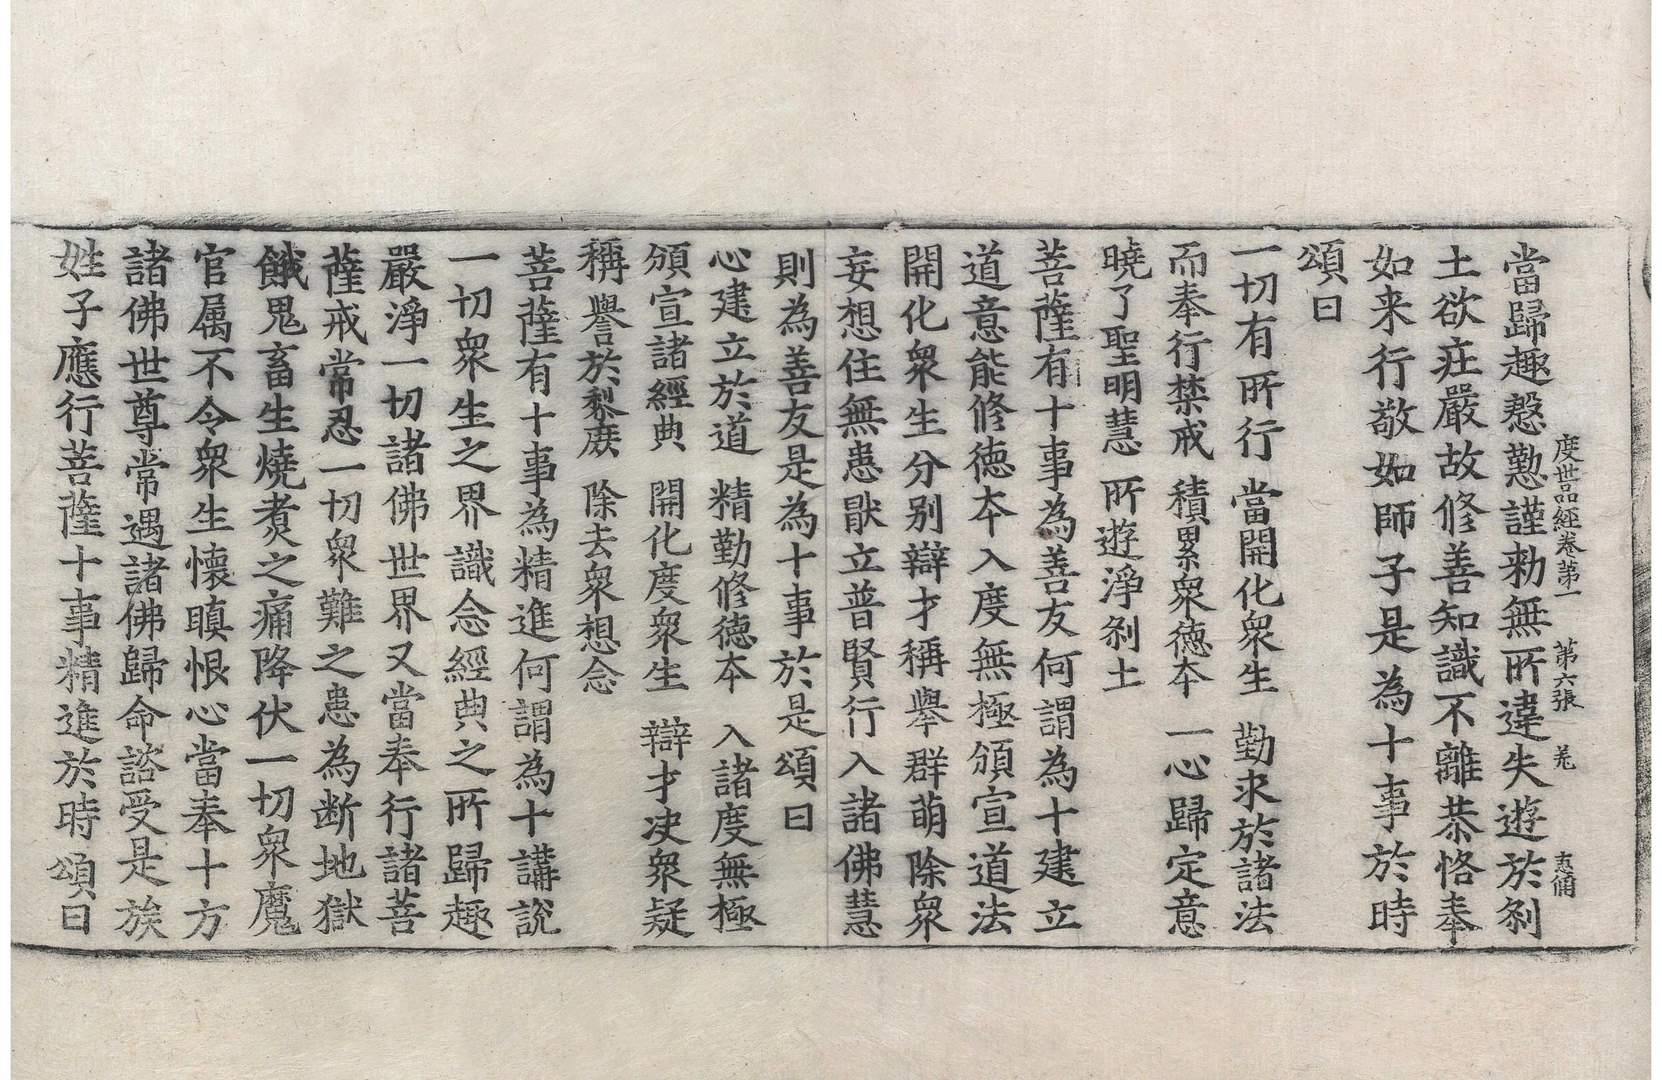 度世品經卷第一 第六張 羌 志備
當歸趣慇懃謹勑無所違失遊於剎
土欲莊嚴故修善知識不離恭恪奉
如来行敬如師子是為十事於時
頌曰
一切有所行 當開化衆生 勤求於諸法
而奉行禁戒 積累衆德本 一心歸定意
曉了聖明慧 所遊淨剎土
菩薩有十事為善友何謂為十建立
道意能修德本入度無極頒宣道法
開化衆生分別辯才稱舉群萌除衆
妄想住無患猒立普賢行入諸佛慧
則為善友是為十事於是頌曰
心建立於道 精勤修德本 入諸度無極
頒宣諸經典 開化度衆生 辯才决衆疑
稱譽於黎庶 除去衆想念
菩薩有十事為精進何謂為十講說
一切衆生之界識念經典之所歸趣
嚴淨一切諸佛世界又當奉行諸菩
薩戒常忍一切衆難之患為断地獄
餓鬼畜生燒煑之痛降伏一切衆魔
官属不令衆生懷瞋恨心當奉十方
諸佛世尊常遇諸佛歸命諮受是族
姓子應行菩薩十事精進於時頌曰